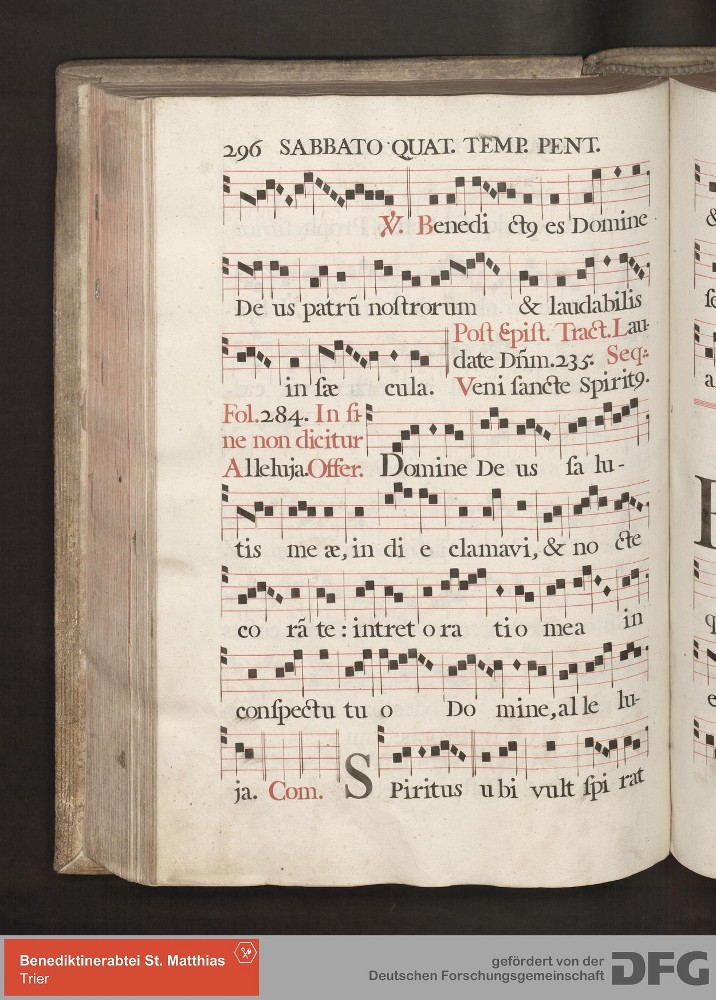 296 SABBATO QUAT. TEMP. PENT.
℣. Benedi ctꝰ es Domine
De us patrū noſtrorum & laudabilis
Poſt Epiſt. Tract. Lau-
date Dn̄m. 235. Seq.:
in ſæ cula. Veni ſancte Spiritꝰ.
Fol. 284. In fi-
ne non dicitur
Alleluja. Offer. Domine De us ſa lu-
tis me æ, in di e clamavi, & no cte
co rā te : intret o ra ti o mea in
conſpectu tu o Do mine, al le lu-
ja. Com. Spiritus u bi vult ſpi rat
&
ſc
a
q
e
Benediktinerabtei St. Matthias
Trier
gefördert von der
Deutschen Forschungsgemeinschaft
DFG